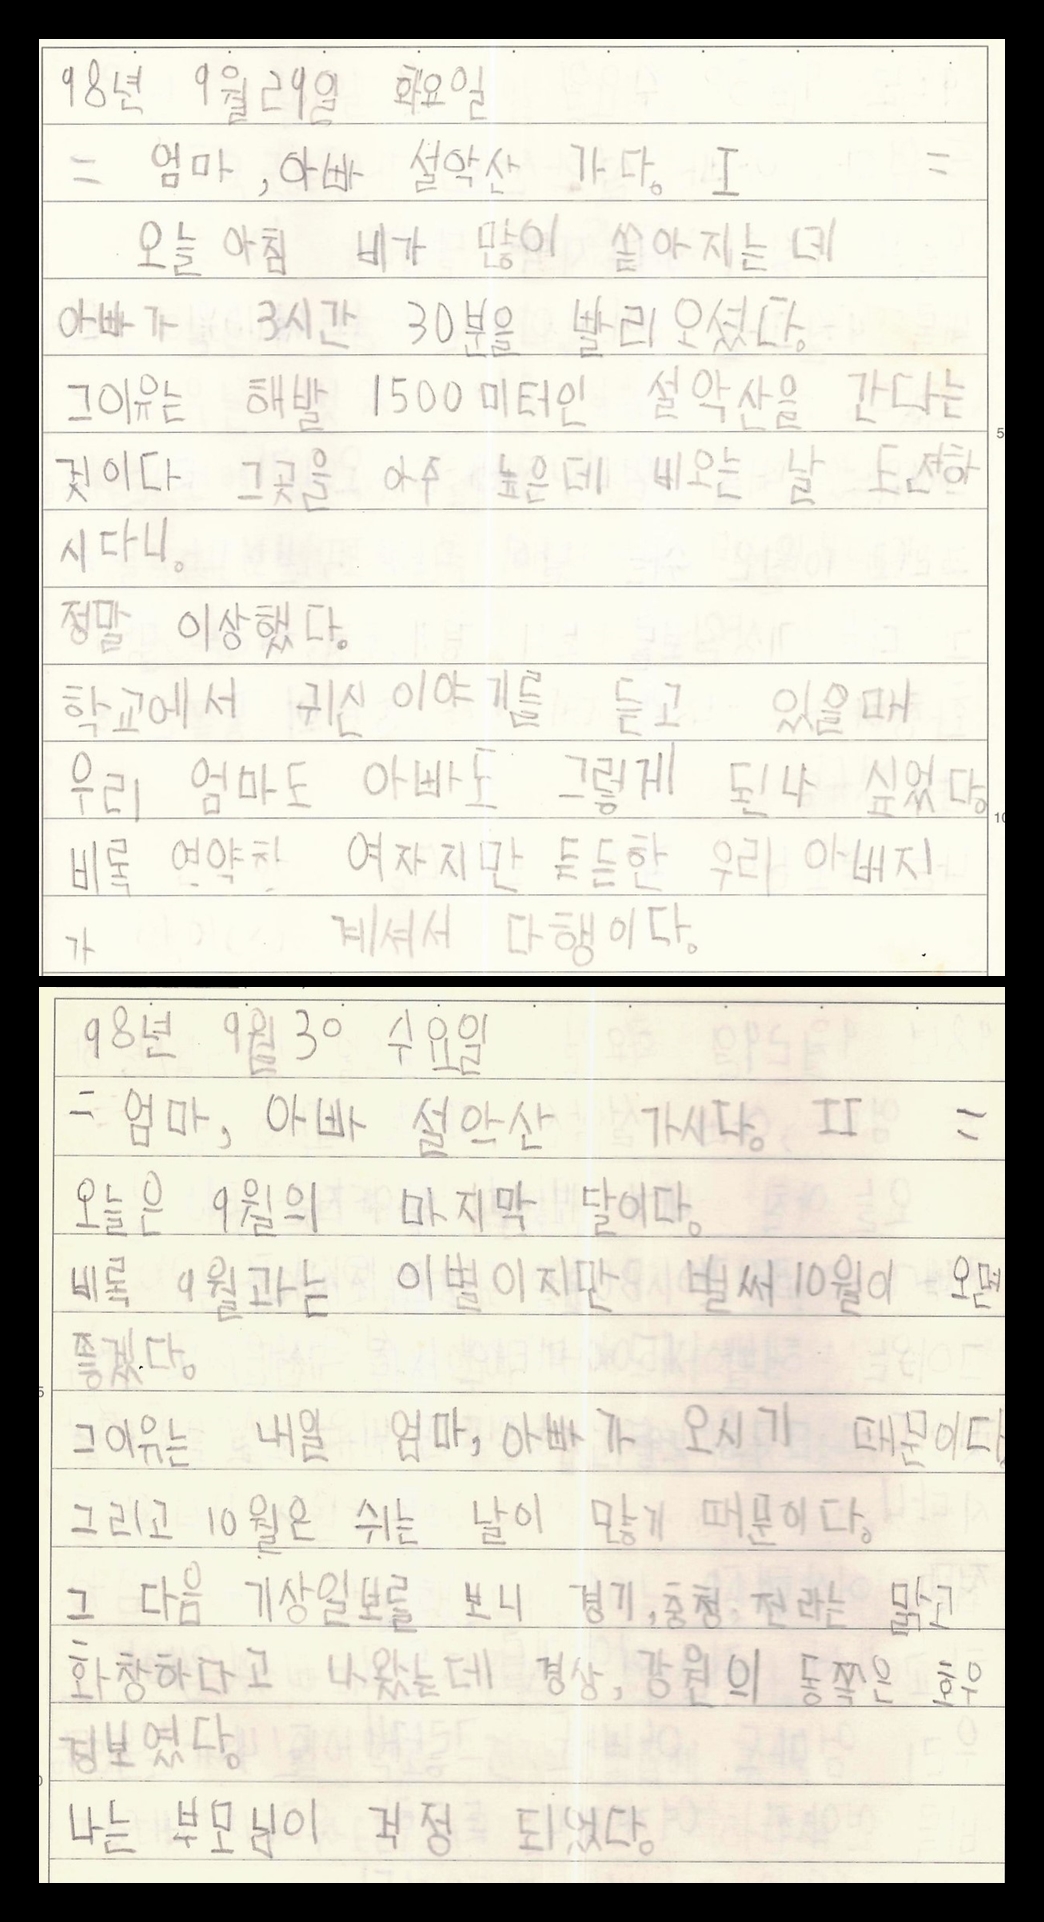 98년 9월 29일 화요일
= 엄마, 아빠 설악산 가다. I =
오늘 아침 비가 많이 쏟아지는데
아빠가 3시간 30분을 빨리 오셨다.
그이유는 해발 1500미터인 설악산을 간다는
것이다 그곳을 아주 높은데 비오는 날 도전하
시다니.
정말 이상했다.
학교에서 귀신 이야기를 듣고 있을때
우리 엄마도 아빠도 그렇게 된나 싶었다.
비록 연약한 여자지만 튼튼한 우리 아버지
가 계셔서 다행이다.
98년 9월 30 수요일
= 엄마, 아빠 설악산 가시다. II =
오늘은 9월의 마지막 달이다.
비록 9월과는 이별이지만 벌써 10월이 오면
좋겠다.
그이유는 내일 엄마, 아빠가 오시기 때문이다.
그리고 10월은 쉬는 날이 많기 때문이다.
그 다음 기상일보를 보니 경기, 충청, 전라는 맑고
화창하다고 나왔는데 경상, 강원의 동쪽은 호우
경보였다.
나는 부모님이 걱정 되었다.